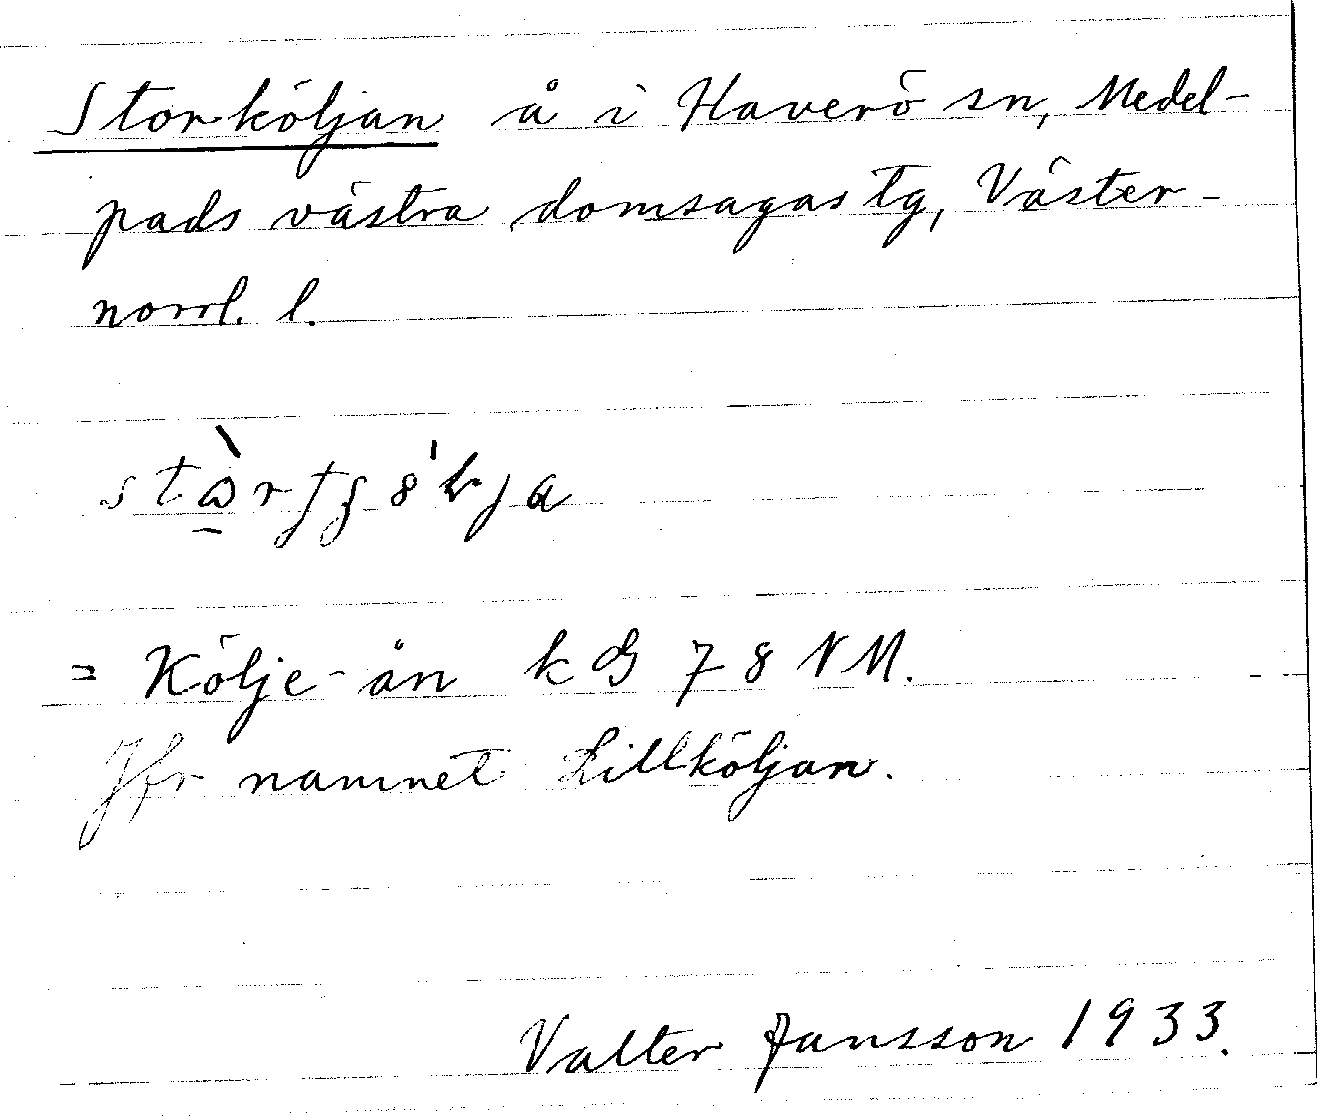 Storköljan å i Haverö sn, Medel-
pads västra domsagas tg, Väster-
norrl. l.
= Kölje-ån k GS 78 NM.
Jfr namnet Lillköljan.
Valter Jansson 1933.